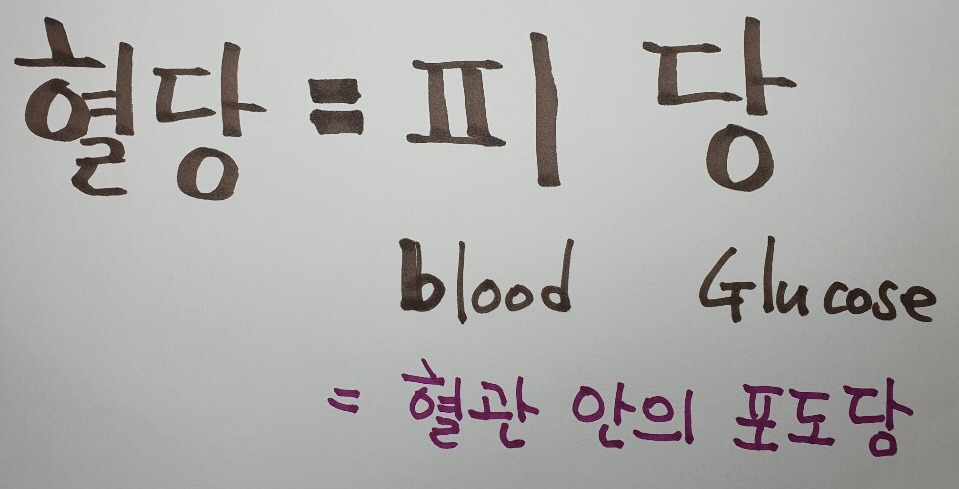 혈당 = 피 당
blood Glucose
= 혈관 안의 포도당